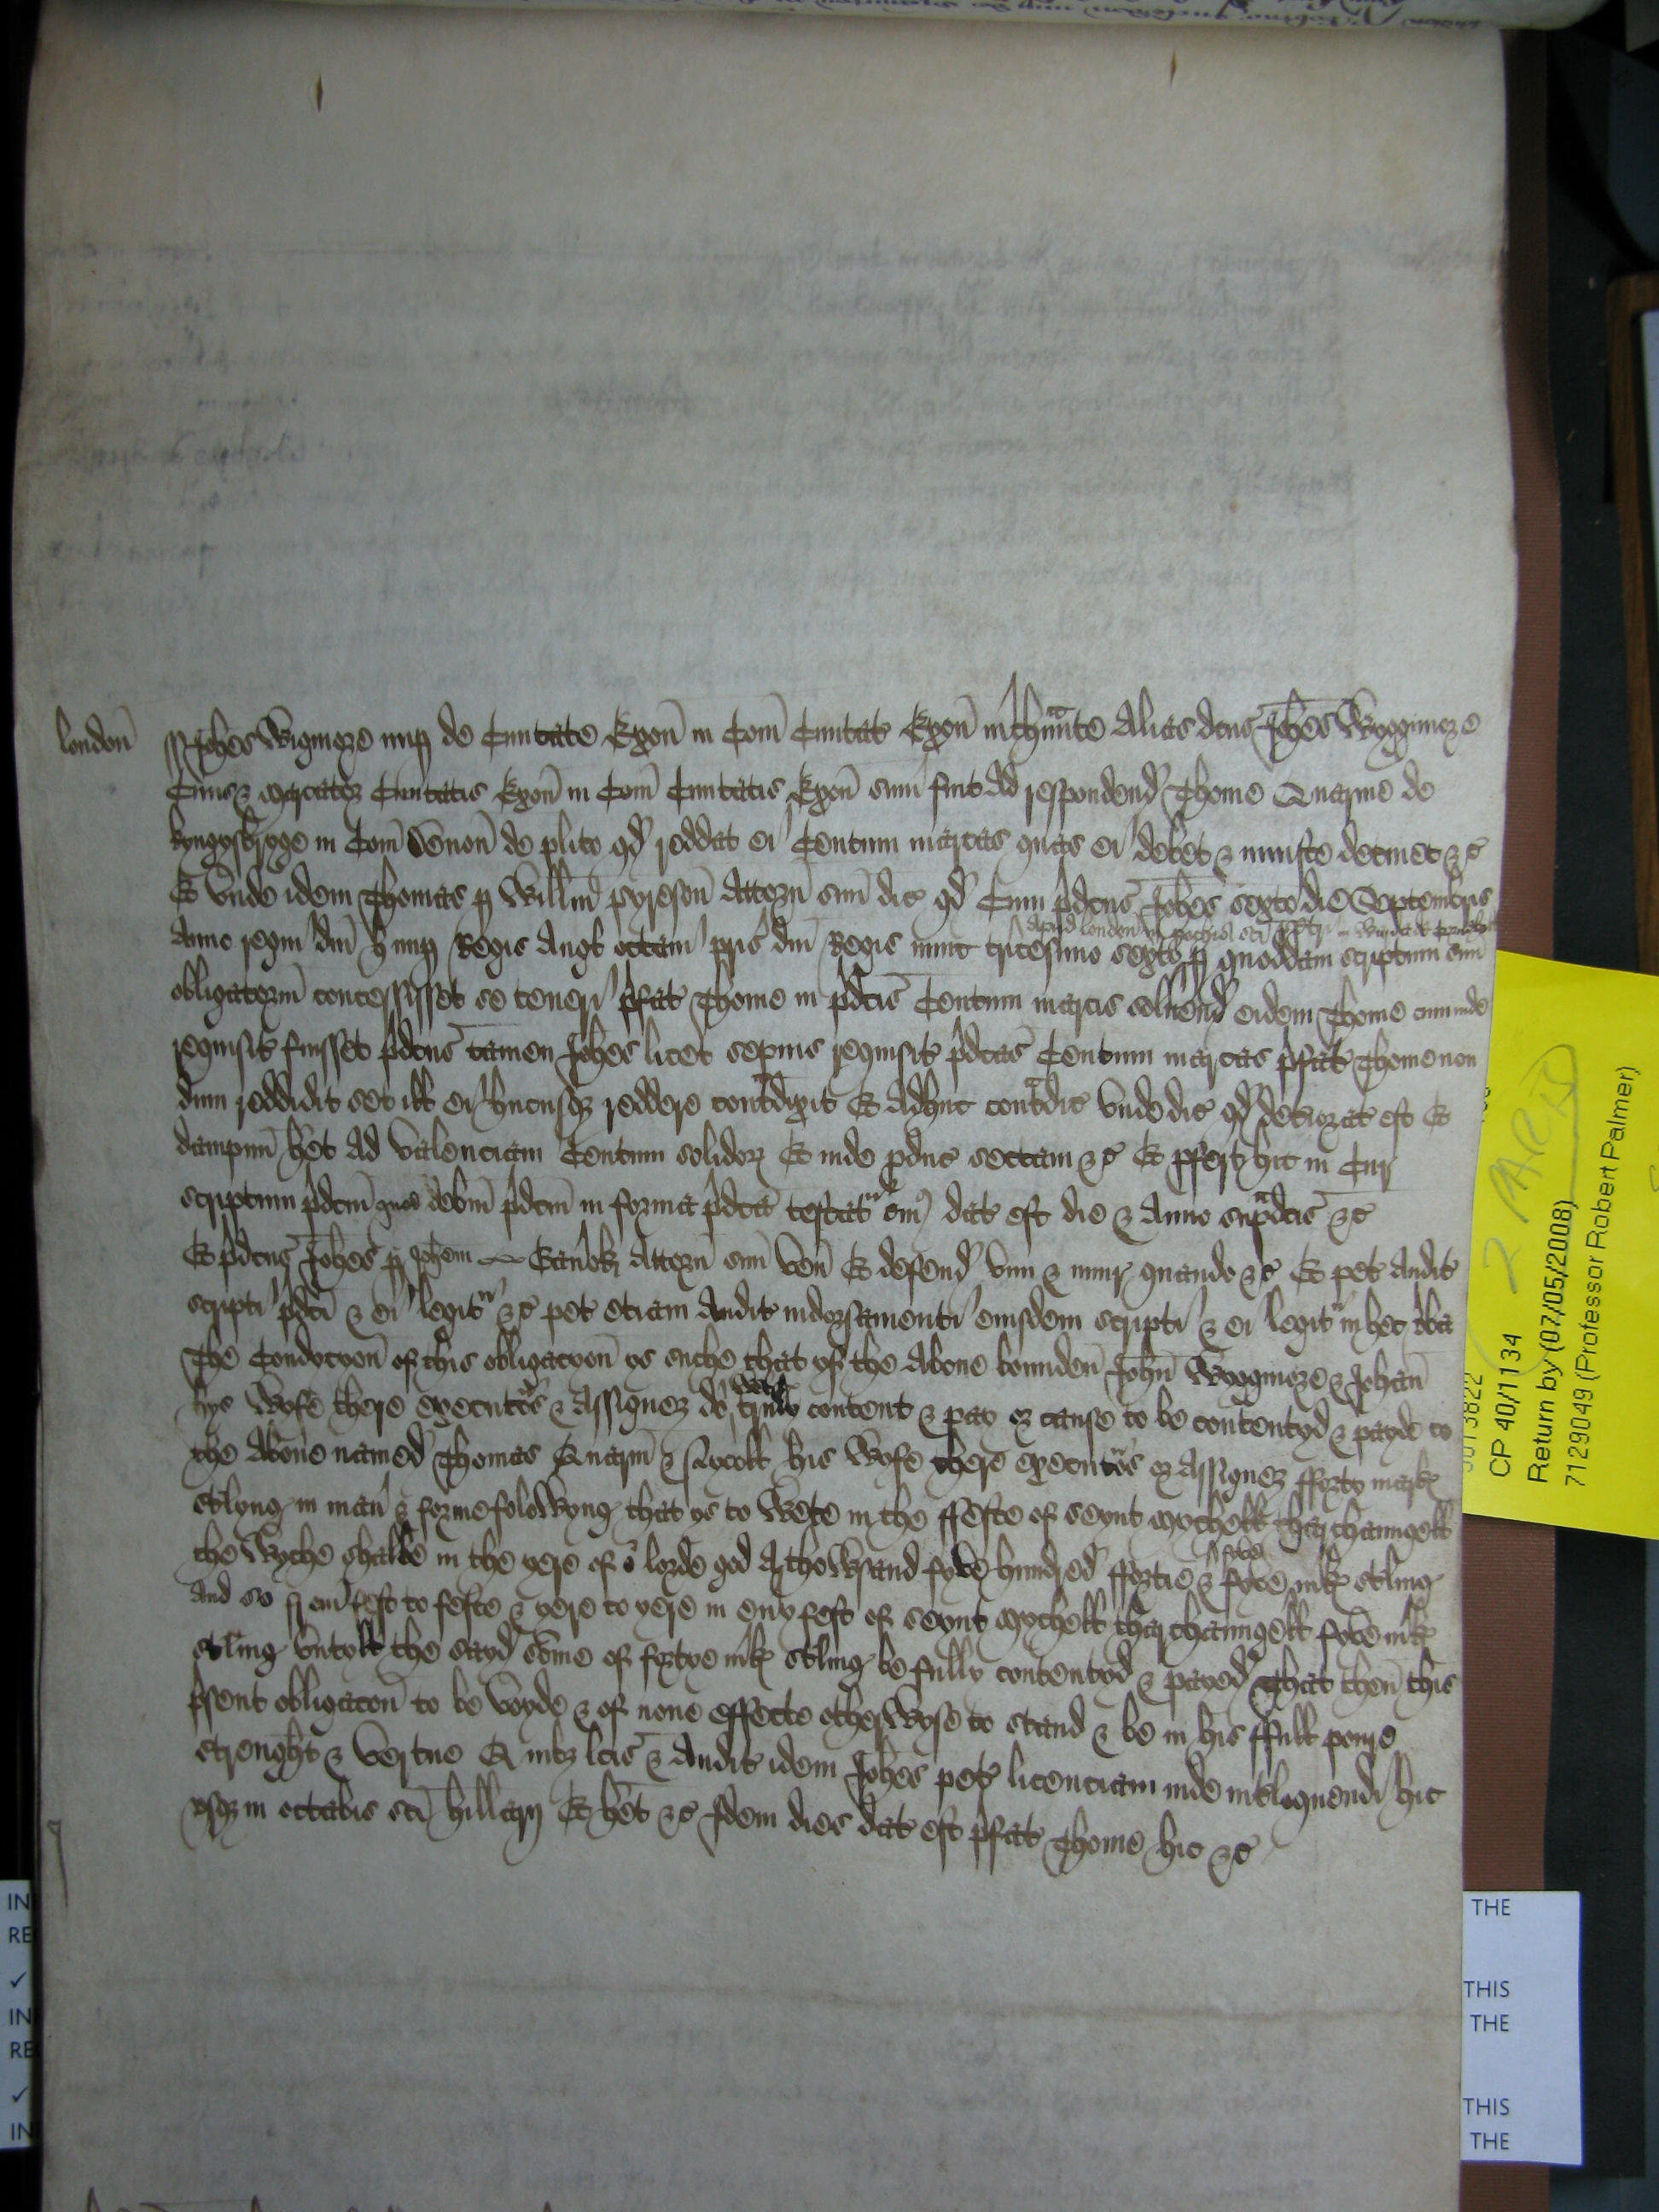 london̄ ss Joħes Wigmore nup de Ciuitate Exon̄ in Com̄ Ciuitat Exon̄ mchaunte alias dcūs Joħes Wyggimore
Ciuis & mercator Ciuitatis Exon̄ in Com̄ Ciuitatis Exon̄ sum̄ fuit ad respondend Thome Quarme de
kyngysbryge in Com̄ Deuon̄ de plito qd reddat ei Centum marcas quas ei debet & iniuste detinet &c
Et vnde idem Thomas p Willm̄ pyreson̄ Attorn̄ suū dic qd Cum pdcūs Joħes sexto die Septembris
Anno regni dnī H nup Regis Angł octaui pris dnī Regis nunc tricesimo sexto apud london in parochia scī
p quoddam scriptum suū
obligatoriū concessisset se teneri pfat Thome in pdcīs Centum marcis soluend eidem Thome cum inde
requisit fuisset pdcūs tamen Joħes licet sepius requisit pdcās Centum marcas pfat Thome non
dum reddidit set ill ei hucusq reddere contdixit Et adhuc contdic vnde dic qd deteriorat est Et
dampnū het ad valenciam Centum solidor Et inde pduc sectam &c Et pfert hic in Cur
scriptum pdcm̄ quod debm̄ pdcm̄ in forma pdcā testat cui dat est die & Anno supdcīs &c
Et pdcūs Joħes p Joħem Attorn̄ suū ven̄ Et defend vim & iniur quando &c Et pet audit
scripti pdcī & ei legit &c pet etiam audit indorsamenti eiusdem scripti & ei legit in hec vba
The Condycyon̄ of this obligacyon̄ ys suche that yf the aboue bounden̄ John̄ Wyggmore & Johan̄
hys Wyfe there executōs & Assignez do well truly content & pay or cause to be contentyd & payde to
the aboue named Thomas Quarm̄ & his Wyfe there executōs or Assignez fforty marke
stlyng in man & forme folowyng that ys to Wete in the ffeste of seynt mychell tharchaungell
the Wyche shalbe in the yere of oʳ lorde god A thowsand fyve hundred ffortie & fyve fyve mk stling
And so fro feste to feste & yere to yere in euy fest of seynt mychell tharchaungell fyve mk
stling vntyll the sayd some of fortye mk stling be fully contentyd & payed That then̄ this
psent obligacon̄ to be voyde & of none effecte otherwyse to stand & be in his ffull powre
strenght & vertue Quibz lcīs & audit idem Joħes pet licenciam inde intloquendi hic
vsq in octabis scī hillarij Et het &c Idem dies dat est pfat Thome hic &c
CP 40/1134
Return by (07/05/2008)
7129049 (Professor Robert Palmer)
IN
RE
✓
IN
RE
✓
IN
THE
THIS
THE
THIS
THE